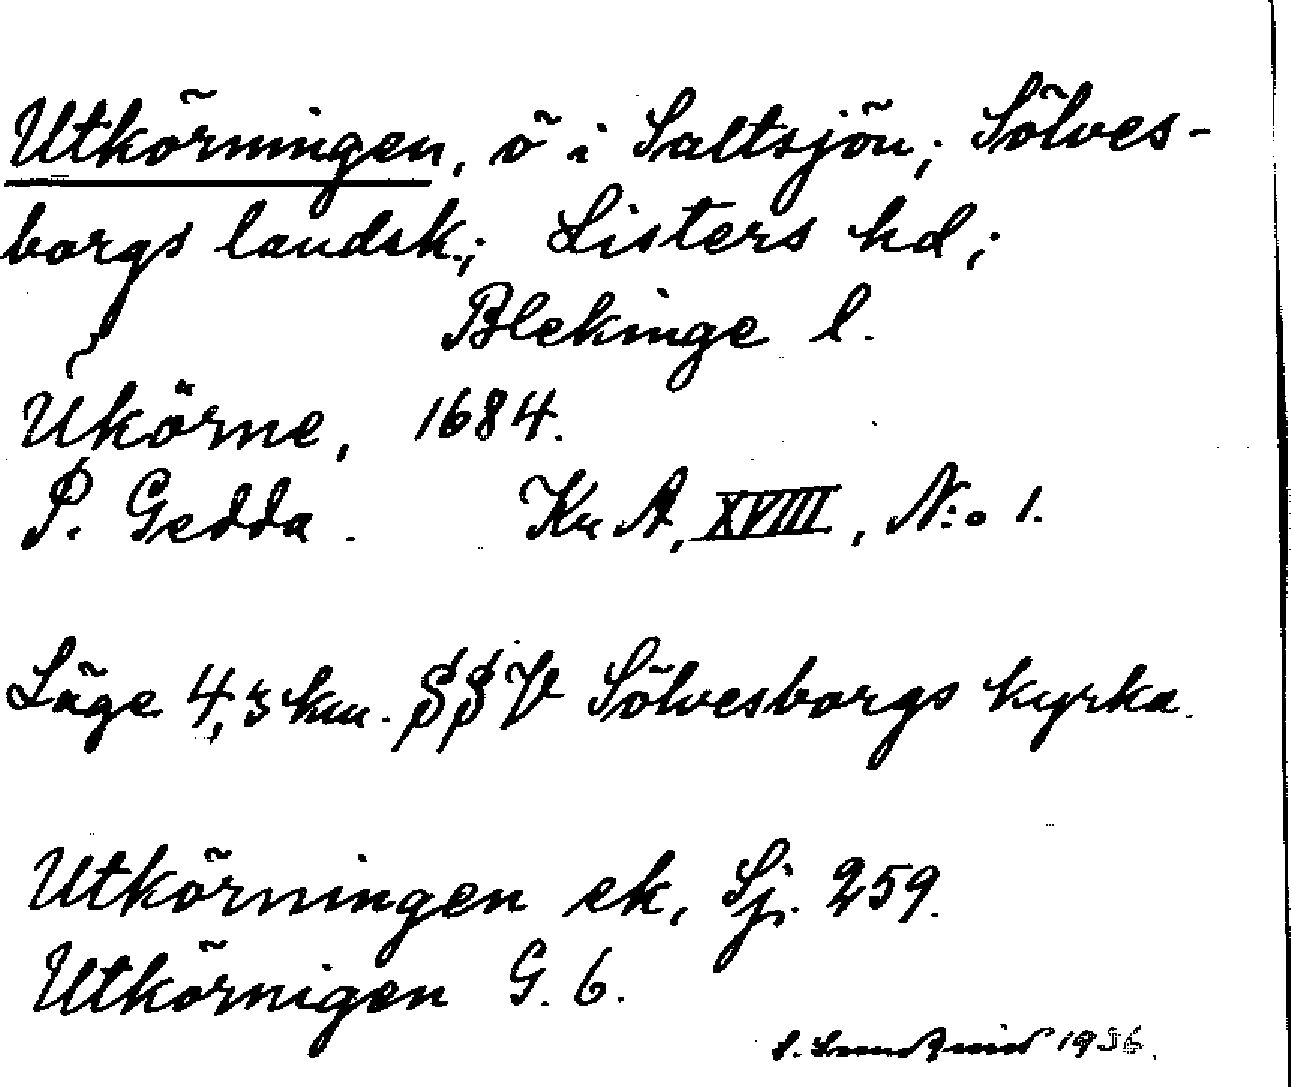 Utkörningen, ö i Saltsjön; Sölves-
borgs landsk.; Listers hd;
Blekinge l.
Ukörne, 1684.
P. Gedda. Kr A, XVIII, N:o 1.
Läge 4,3 km. SSV Sölvesborgs kyrka.
Utkörningen ek, Sj. 259.
Utkörnigen G. 6.
1936.